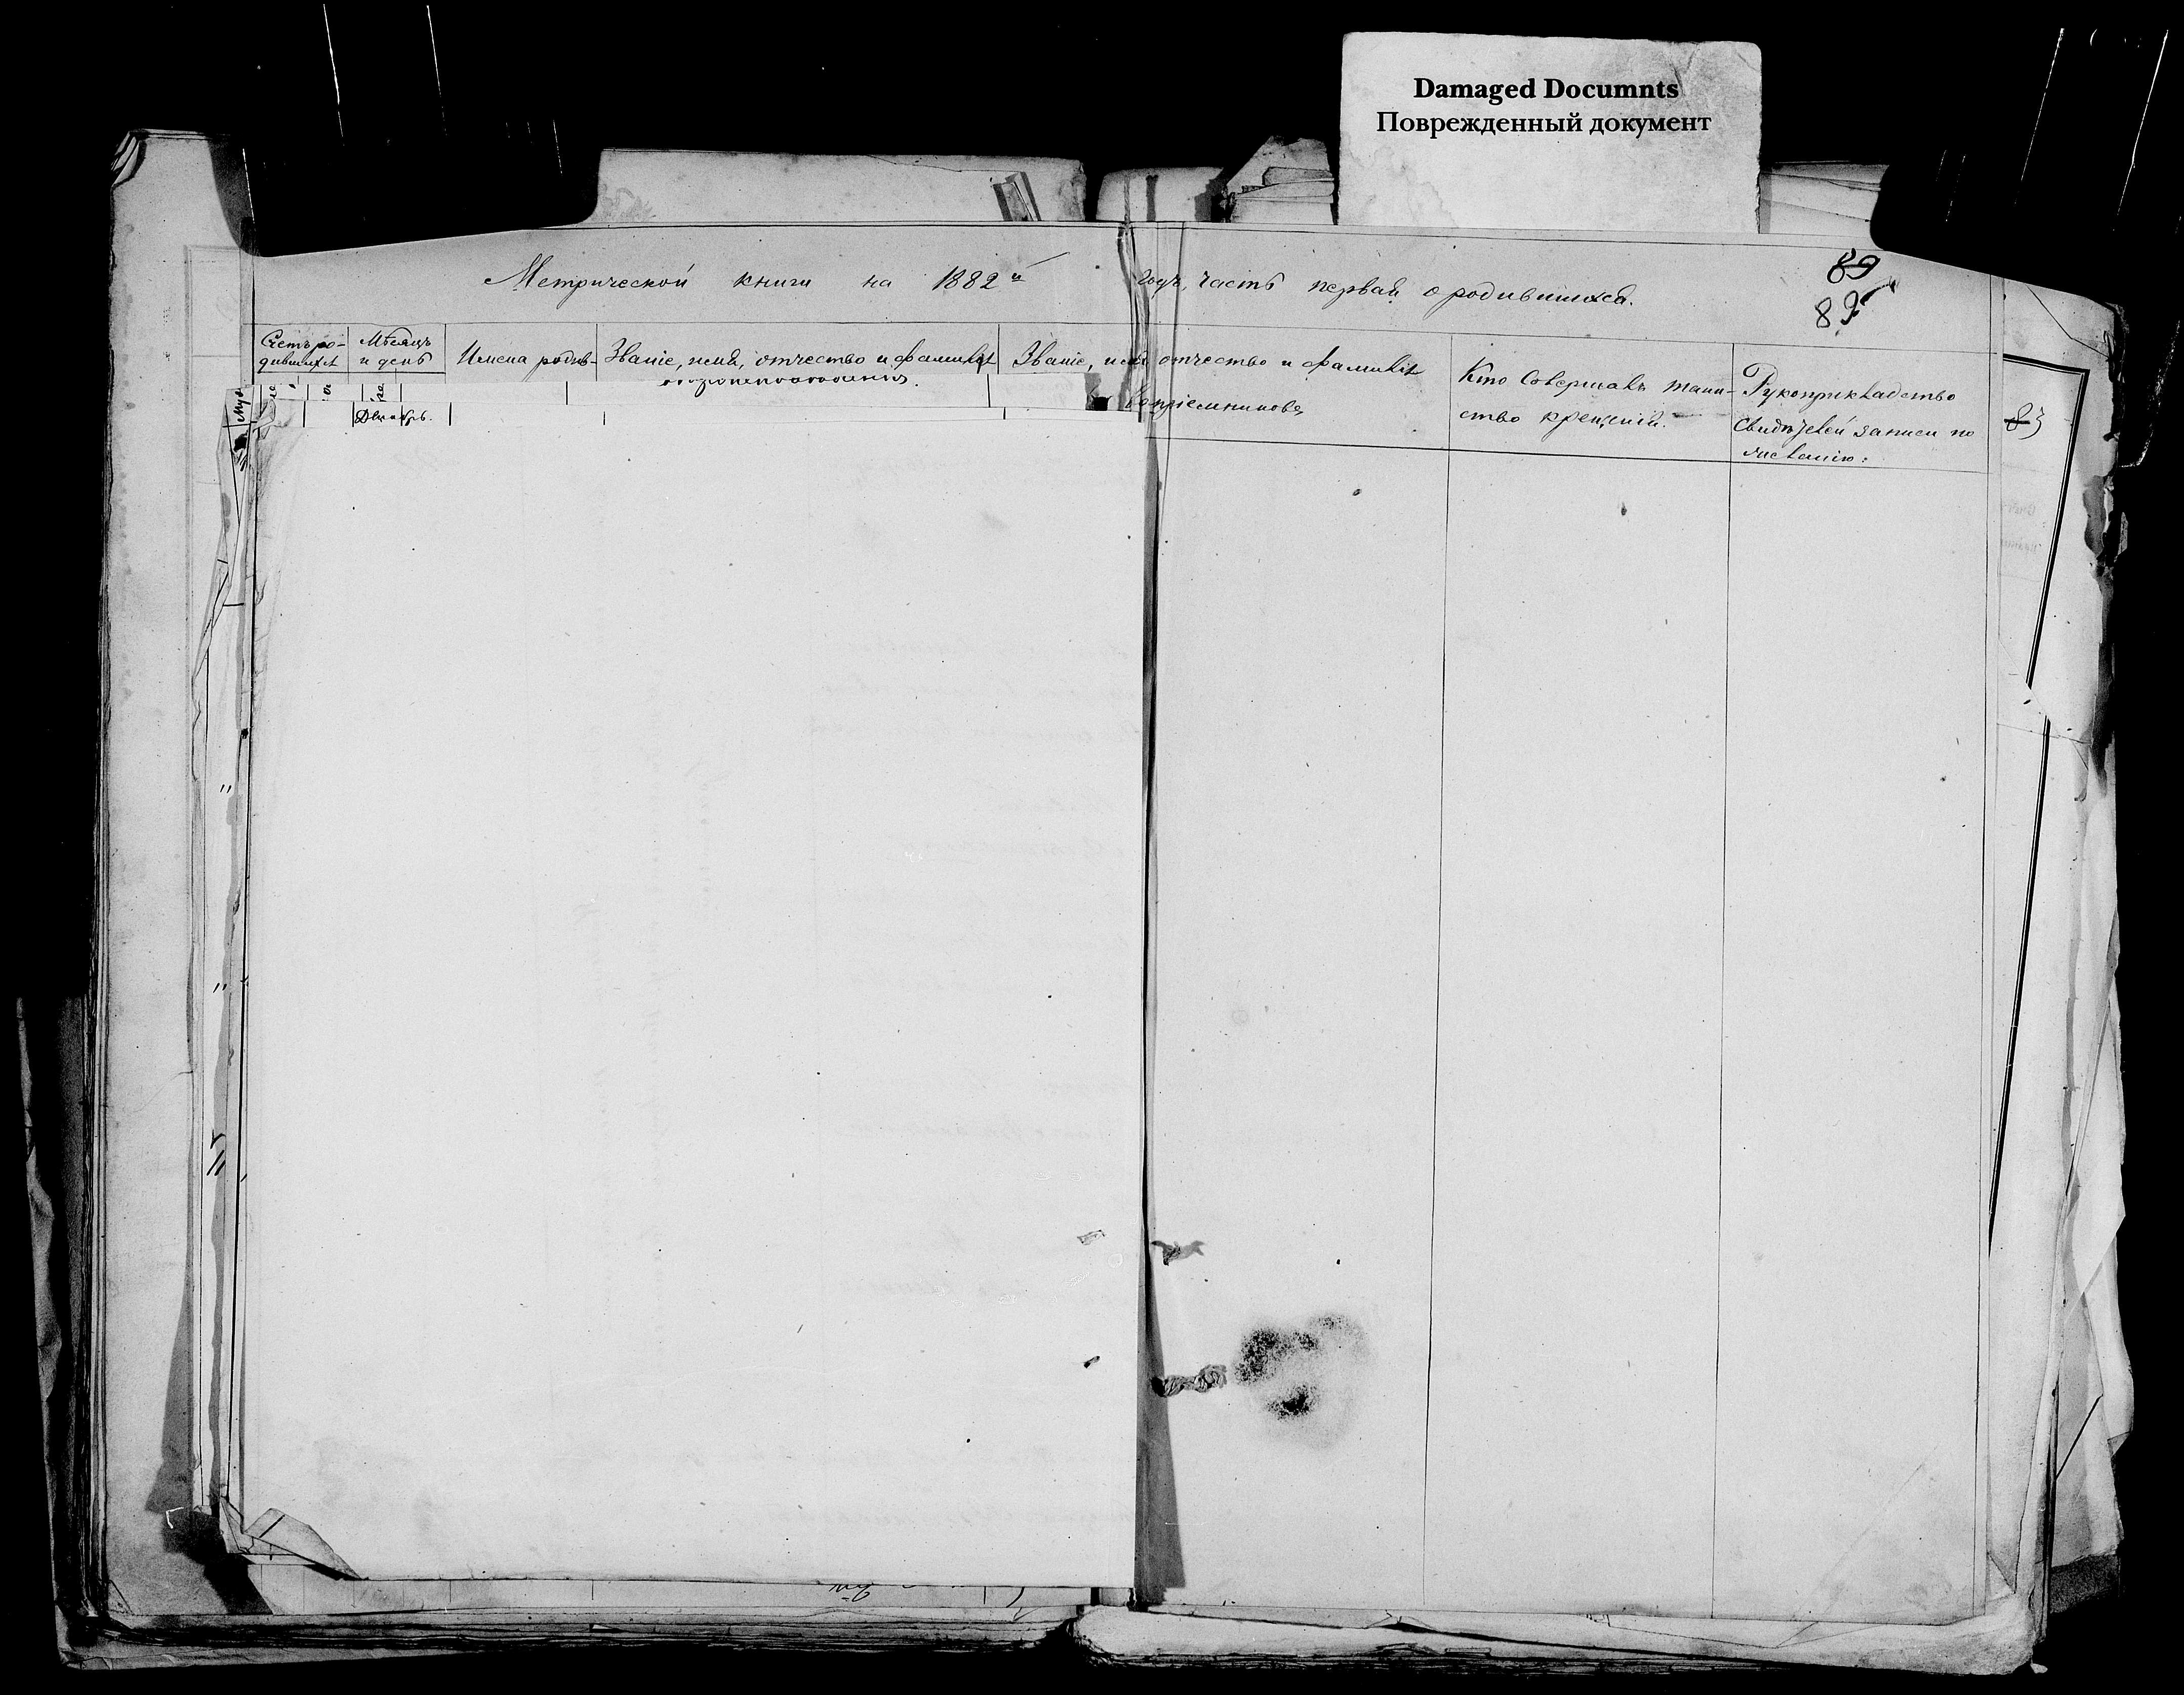 Damaged Documnts
Поврежденный документ
Метрической книги на 1882й годъ, часть первая о родившихся.
89
89
Счетъ ро-
дившихся
Мѣсяцъ
и день
Имена родив-
Званіе, имя, отчество и фамилія
Званіе, имя отчество и фамилія
воспріемниковъ
Кто совершалъ таин-
ство крещенія.
Рукоприкладство
свидѣтелей записи по
желанію:
83
Декабрь.